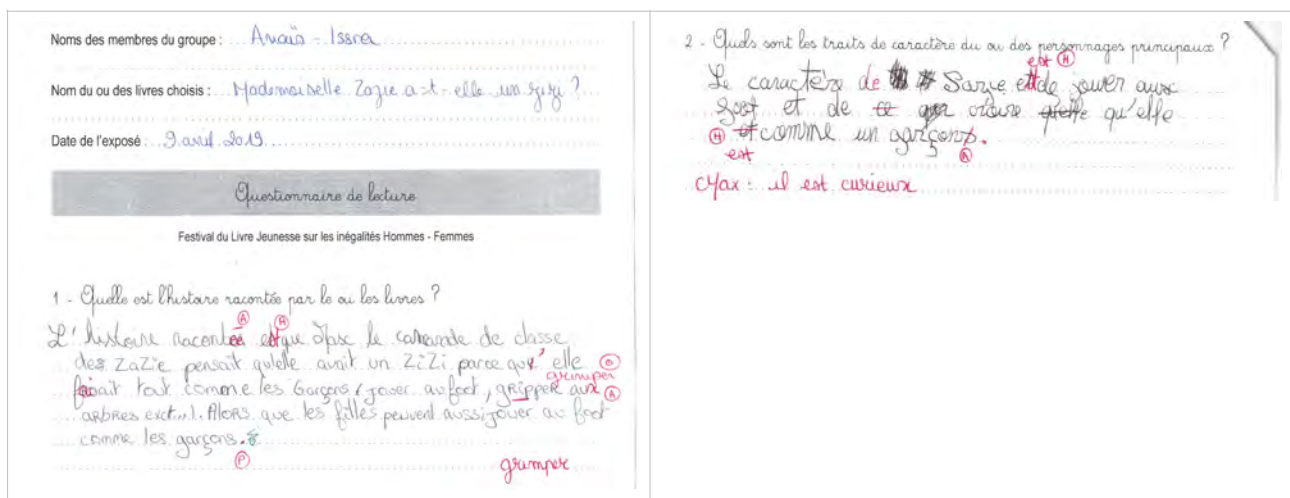 Noms des membres du groupe : Anaïs - Issra
Nom du ou des livres choisis : Mademoiselle Zazie a-t-elle un zizi ?
Date de l'exposé : 9 avril 2019
Questionnaire de lecture
Festival du Livre Jeunesse sur les inégalités Hommes - Femmes
1 - Quelle est l'histoire racontée par le ou les livres ?
A H
L'histoire racontée est que Max le camarade de classe
des ZaZie pensait qu'elle avait un ZiZi parce qu' elle O
grimper
faisait tout comme les Garçons (jouer au foot, gripper aux A
arbres exct...). Alors que les filles peuvent aussi jouer au foot
comme les garçons.
P
grimper
2 - Quels sont les traits de caractère du ou des personnages principaux ?
est H
Le caractère de Sazie et de jouer aux
foot et de ce croire qu'elle
H et comme un garçons.
est A
Max : il est curieux